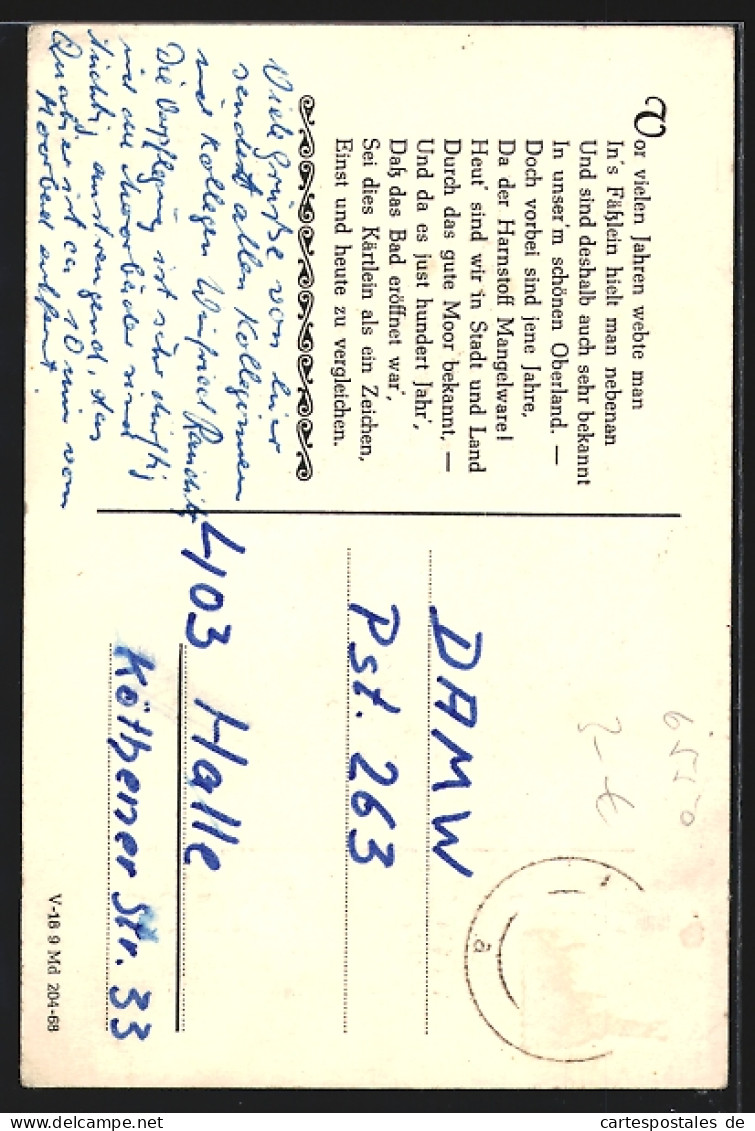 Vor vielen Jahren webte man
In's Fäßlein hielt man nebenan
Und sind deshalb auch sehr bekannt
In unser'm schönen Oberland. —
Doch vorbei sind jene Jahre,
Da der Harnstoff Mangelware!
Heut' sind wir in Stadt und Land
Durch das gute Moor bekannt, —
Und da es just hundert Jahr',
Daß das Bad eröffnet war',
Sei dies Kärtlein als ein Zeichen,
Einst und heute zu vergleichen.
Viele Grüße von hier
sendet allen Kolleginnen
und Kollegen Winfried
Die Verpflegung ist sehr dürftig
und die Moorbäder sind
tüchtig anstrengend, das
Quartier ist ca 10 min vom
Moorbad entfernt.
DAMW
Pst. 263
403 Halle
Köthener Str. 33
V-18 9 Md 204-68
6550
a
akpool.de
cartespostales de